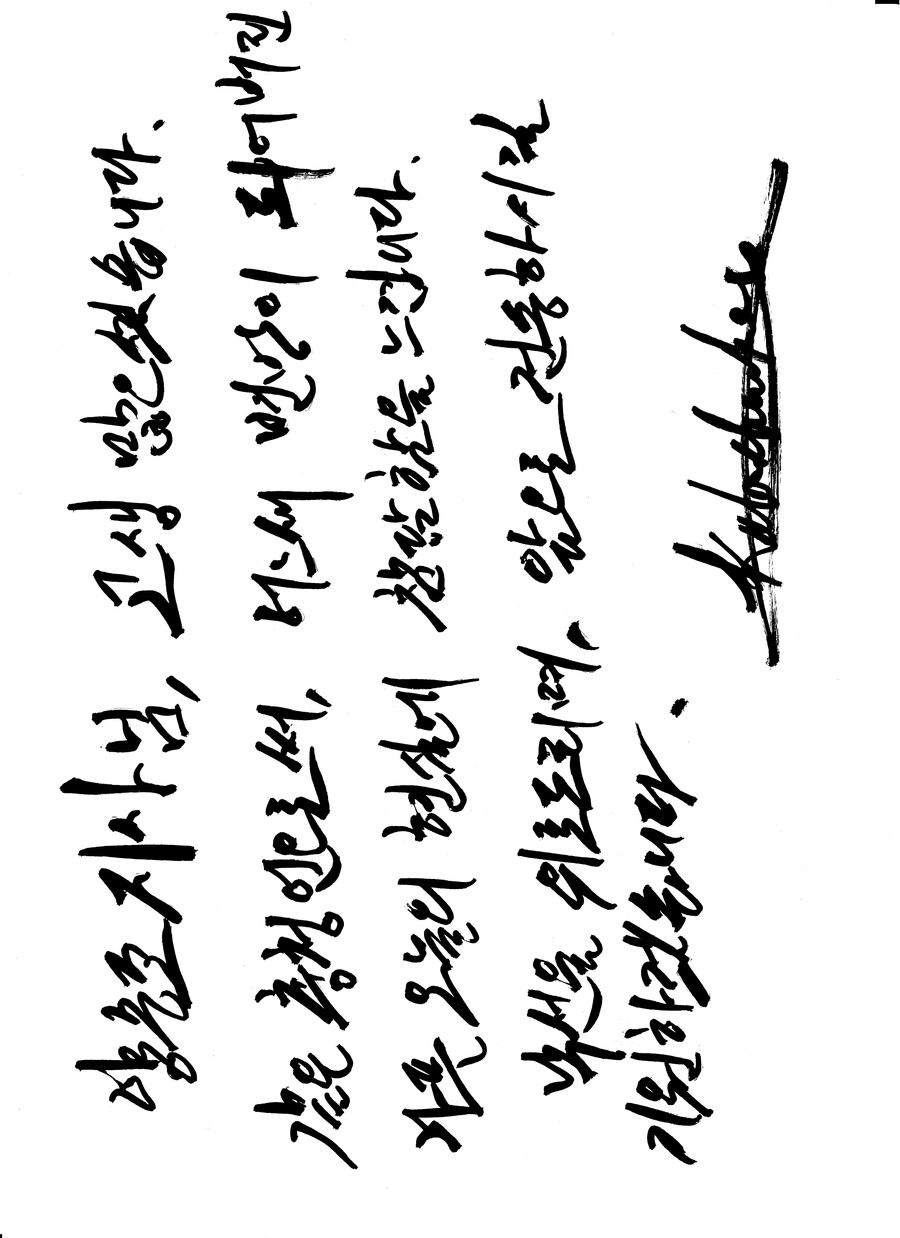 양승조 지사님, 고생 많으셨습니다.
같은 충청인으로써, 어느새 변방이 되어버린
아픈 오늘의 현실에 참담함을 느낍니다.
낙선을 위로드리며, 앞으로 건승하시길
기원하겠습니다.